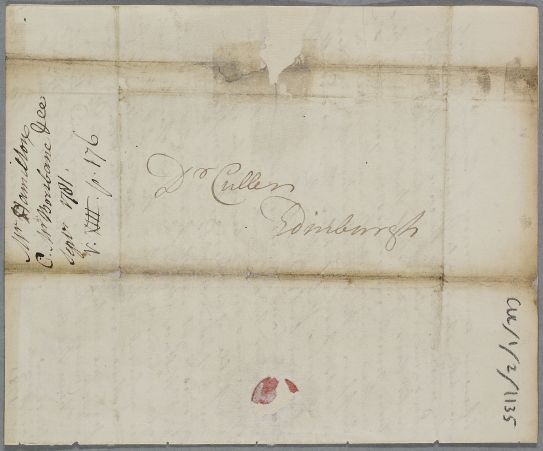 Dr Cullen
Edinburgh
Mr Hamilton
C. Mr Brisbane &ca
Septr 1781.
V. XIII. p. 176
CUL/1/2/1135